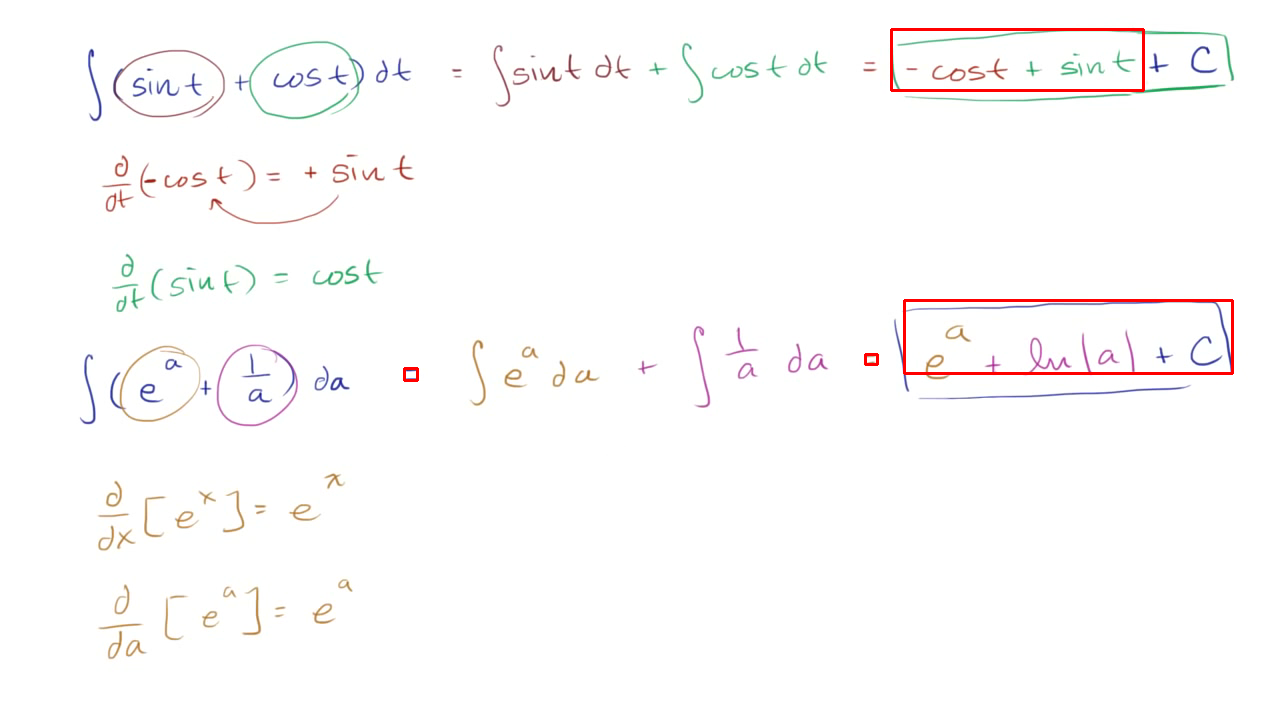 ∫(sin t + cos t) dt = ∫sin t dt + ∫cos t dt = - cos t + sin t + C
d/dt (-cos t) = + sin t
d/dt (sin t) = cos t
∫(e^a + 1/a) da = ∫e^a da + ∫1/a da = e^a + ln|a| + C
d/dx [e^x] = e^x
d/da [e^a] = e^a